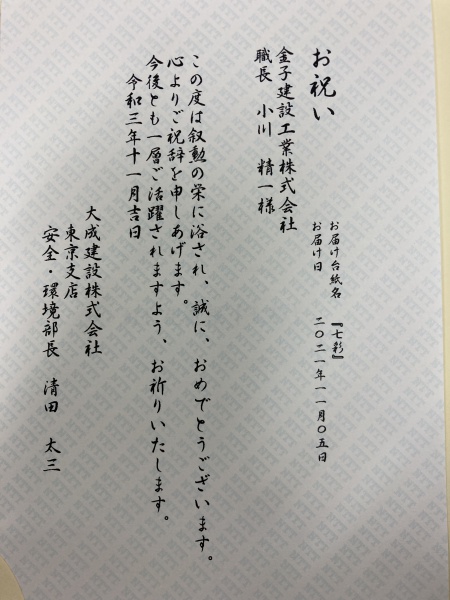 お届け台紙名 『七彩』
お届け日 二〇二一年一一月〇五日
お祝い
金子建設工業株式会社
職長 小川 精一様
この度は叙勲の栄に浴され、誠に、おめでとうございます。
心よりご祝辞を申しあげます。
今後とも一層ご活躍されますよう、お祈りいたします。
令和三年十一月吉日
大成建設株式会社
東京支店
安全・環境部長 清田 太三